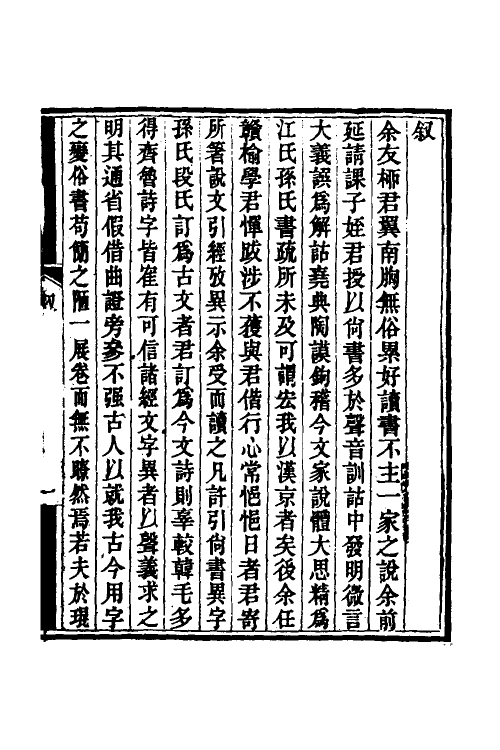 叙
余友栁君翼南胸無俗累好讀書不主一家之說余前
延請課子姪君授以尙書多於聲音訓詁中發明微言
大義誤爲解詁堯典陶謨鉤稽今文家說體大思精爲
江氏孫氏書疏所未及可謂宏我以漢京者矣後余任
贛榆學君憚跋涉不獲與君偕行心常悒悒日者君寄
所箸說文引經攷異示余受而讀之凡許引尙書異字
孫氏段氏訂爲古文者君訂爲今文詩則辜較韓毛多
得齊魯詩字皆隺有可信諸經文字異者以聲義求之
明其通省假借曲證旁參不强古人以就我古今用字
之變俗書苟簡之陋一展卷而無不瞭然焉若夫於琨
叙
一